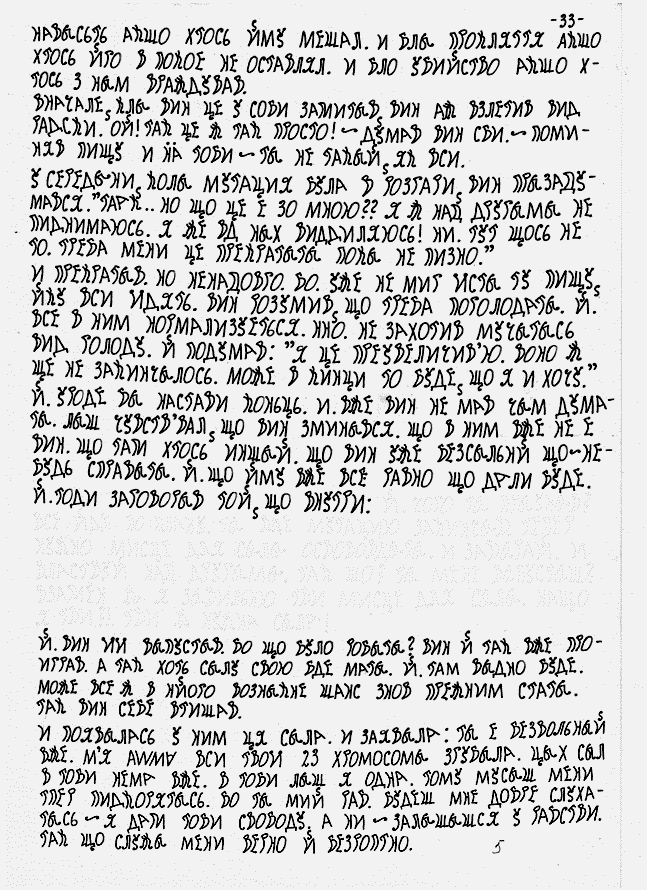 -33-
АКЩО ХТОСЬ ЙМУ МЕШАЛ. И ПРОКЛЯТТЯ АКЩО
ХТОСЬ ЙГО В ПОКОЕ НЕ ОСТАВЛЯЛ. И БЛО УБИЙСТВО АКЩО Х-
ТОСЬ З НЫМ ВРАЖДУВАВ.
ВНАЧАЛЕ, ВИН ЦЕ У СОБИ ЗАМИТЫВ, ВИН АЖ ВЗЛЕТИВ ВИД
РАДСТИ. ОЙ! ТАК ЦЕ Ж ТАК ПРОСТО! ~ ДУМАВ ВИН СБИ. ~ ПОМИ-
НЯВ ПИЩУ И НА ТОБИ ~ ТЫ НЕ ТАКЫЙ, ЯК ВСИ.
У СЕРЕДЫНИ, КОЛЫ МУТАЦИЯ БУЛА В РОЗГАРИ, ВИН ПРЫЗАДУ-
МАВСЯ. "ТАРК.. НО ЩО ЦЕ Е ЗО МНОЮ?? Я Ж НАД ДРУГЫМЫ НЕ
ПИДНИМАЮСЬ. Я ЖЕ ВД НЫХ ВИДДИЛЯЮСЬ! НИ. ТУТ ЩОСЬ НЕ
ТО. ТРЕБА МЕНИ ЦЕ ПРЕКРАТЫТЫ ПОКЫ НЕ ПИЗНО."
И ПРЕКРАТЫВ. НО НЕНАДОВГО. БО. УЖЕ НЕ МИГ ИСТЫ ТУ ПИЩУ,
ЙКУ ВСИ ИДЯТЬ. ВИН РОЗУМИВ, ЩО ТРЕБА ПОГОЛОДАТЫ. Й.
ВСЕ В НИМ НОРМАЛИЗУЕТЬСЯ. НО. НЕ ЗАХОТИВ МУЧЫТЫСЬ
ВИД ГОЛОДУ. Й ПОДУМАВ: "Я ЦЕ ПРЕУВЕЛИЧИВ'Ю. ВОНО Ж
ЩЕ НЕ ЗАКИНЧЫЛОСЬ. МОЖЕ В КИНЦИ ТО БУДЕ, ЩО Я И ХОЧУ."
Й. УРОДЕ БЫ НАСТАВИ КОНЫЦЬ. И. ВЖЕ ВИН НЕ МАВ ЧЫМ ДУМА-
ТЫ. ЛЫШ ЧУВСТВ'ВАЛ, ЩО ВИН ЗМИНЫВСЯ. ЩО В НИМ ВЖЕ НЕ Е
ВИН. ЩО ТАМ ХТОСЬ ИНШЫЙ. ЩО ВИН УЖЕ БЕЗСЫЛЬНИЙ ЩО~НЕ-
БУДЬ СПРАВЫТЫ. Й. ЩО ЙМУ ВЖЕ ВСЕ РАВНО ЩО ДАЛИ БУДЕ.
Й. ТОДИ ЗАГОВОРЫВ ТОЙ, ЩО ВНУТРИ:
Й. ВИН ИЙ ВЫПУСТЫВ. БО ЩО БУЛО РОБЫТЫ? ВИН Й ТАК ВЖЕ ПРО-
ИГРАВ. А ТАК ХОТЬ СЫЛУ СВОЮ БДЕ МАТЫ. Й. ТАМ ВЫДНО БУДЕ.
МОЖЕ ВСЕ Ж В НЙОГО ВОЗНЫКНЕ ШАНС ЗНОВ ПРЕЖНИМ СТАТЫ.
ТАК ВИН СЕБЕ ВТИШАВ.
И ПОЯВЫЛАСЬ У НИМ ЦЯ СЫЛА. И ЗАЯВЫЛА: ТЫ Е БЕЗВОЛЬНЫЙ
ВЖЕ. М'Я ВСИ ТВОИ 23 ХРОМОСОМЫ ЗГУБЫЛА. ЦЫХ СЫЛ
В ТОБИ НЕМА ВЖЕ. В ТОБИ ЛЫШ Я ОДНА. ТОМУ МУСЫШ МЕНИ
ТПЕР ПИДКОРЯТЫСЬ. БО ТЫ МИЙ РАБ. БУДЕШ МНЕ ДОБРЕ СЛУХА-
ТЫСЬ ~ Я ДАМ ТОБИ СВОБОДУ, А НИ ~ ЗАЛЫШЫШСЯ У РАБСТВИ.
ТАК ЩО СЛУЖЫ МЕНИ ВЕРНО Й БЕЗРОПТНО.
5